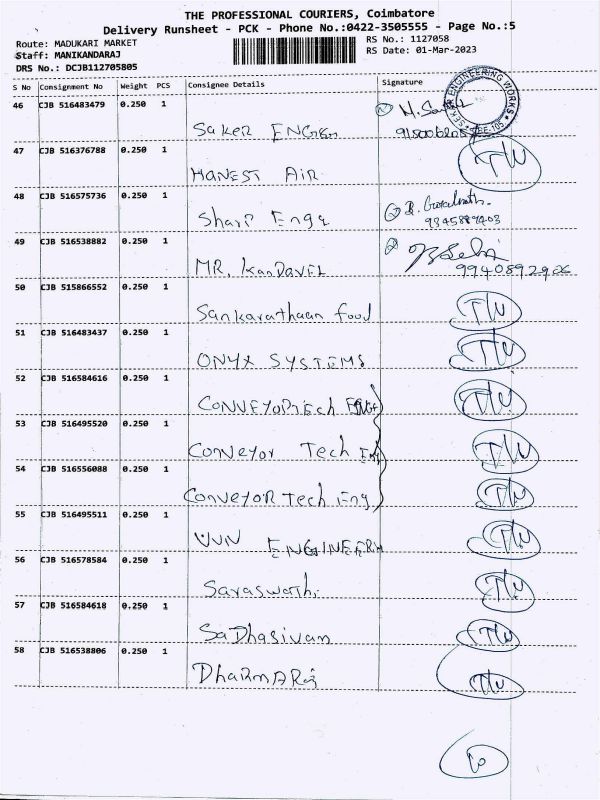 THE PROFESSIONAL COURIERS, Coimbatore
Delivery Runsheet - PCK - Phone No.:0422-3505555 - Page No.:5
Route: MADUKARI MARKET RS No.: 1127058
Staff: MANIKANDARAJ RS Date: 01-Mar-2023
DRS No.: DCJB112705805
S No Consignment No Weight PCS Consignee Details Signature
46 CJB 516483479 0.250 1
Saker ENGRGn
47 CJB 516376788 0.250 1
HANEST Air TW
48 CJB 516575736 0.250 1
Sharp Engg
9345889403
49 CJB 516538882 0.250 1
MR. KanDAVEL
9940892906
50 CJB 515866552 0.250 1
Sankarathaan food TW
51 CJB 516483437 0.250 1
ONYX SYSTEMS TW
52 CJB 516584616 0.250 1
CONVEYORTECH ENGG TW
53 CJB 516495520 0.250 1
Conveyor Tech Eng TW
54 CJB 516556088 0.250 1
ConveyoR Tech Eng TW
55 CJB 516495511 0.250 1
VVN ENGINEERN TW
56 CJB 516578584 0.250 1
Saraswathi TW
57 CJB 516584618 0.250 1
SaDhasivam TW
58 CJB 516538806 0.250 1
DharmARaj TW
10